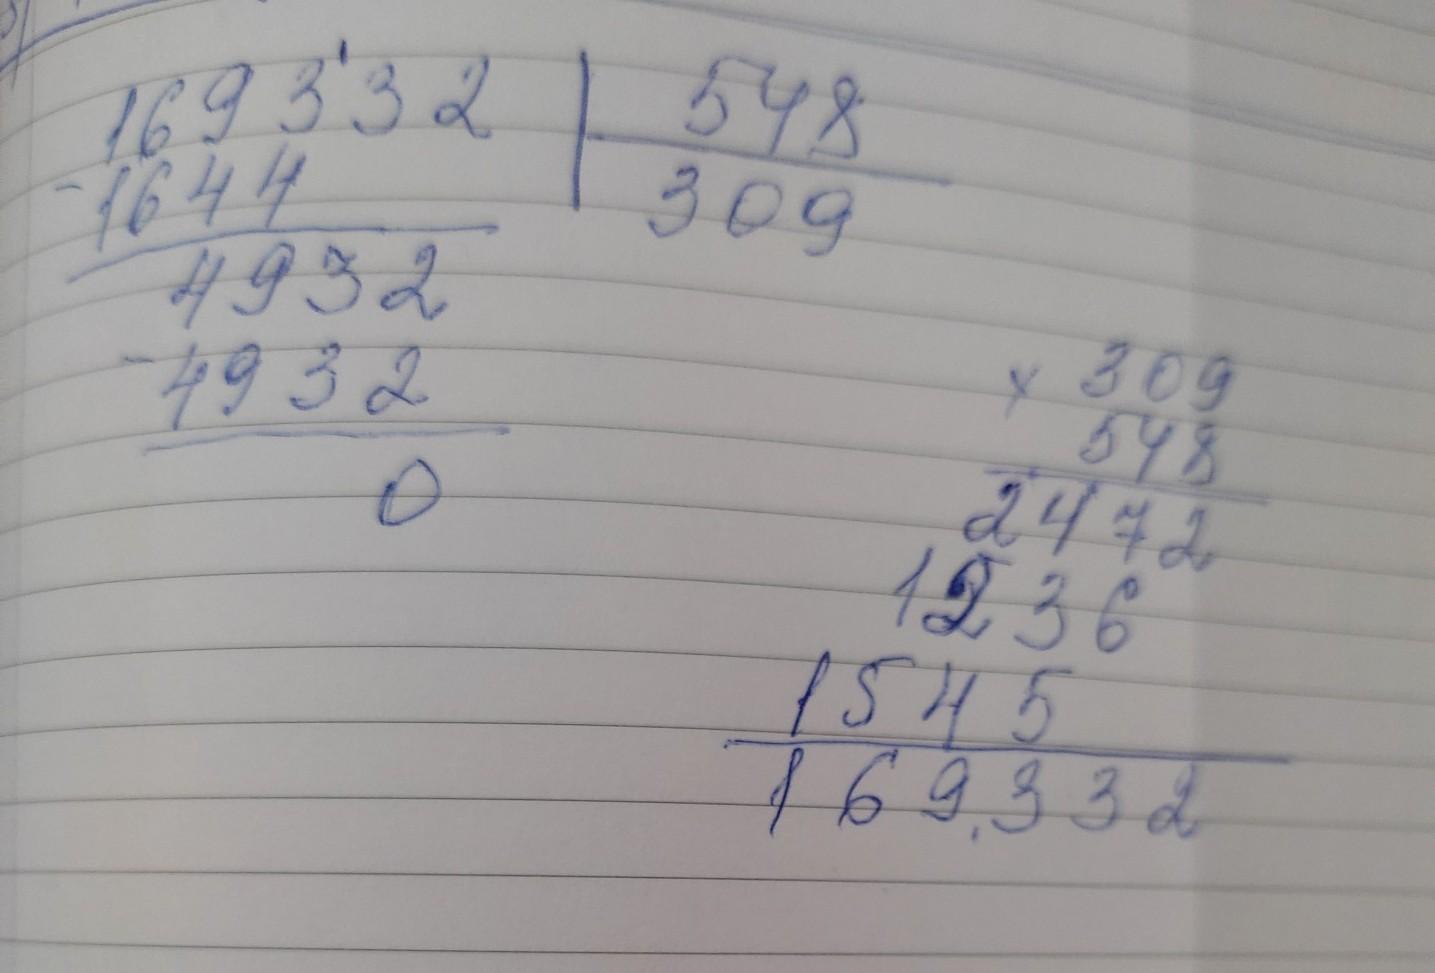 169332 | 548
-1644 309
4932
-4932
0
x 309
548
2472
1236
1545
169.332